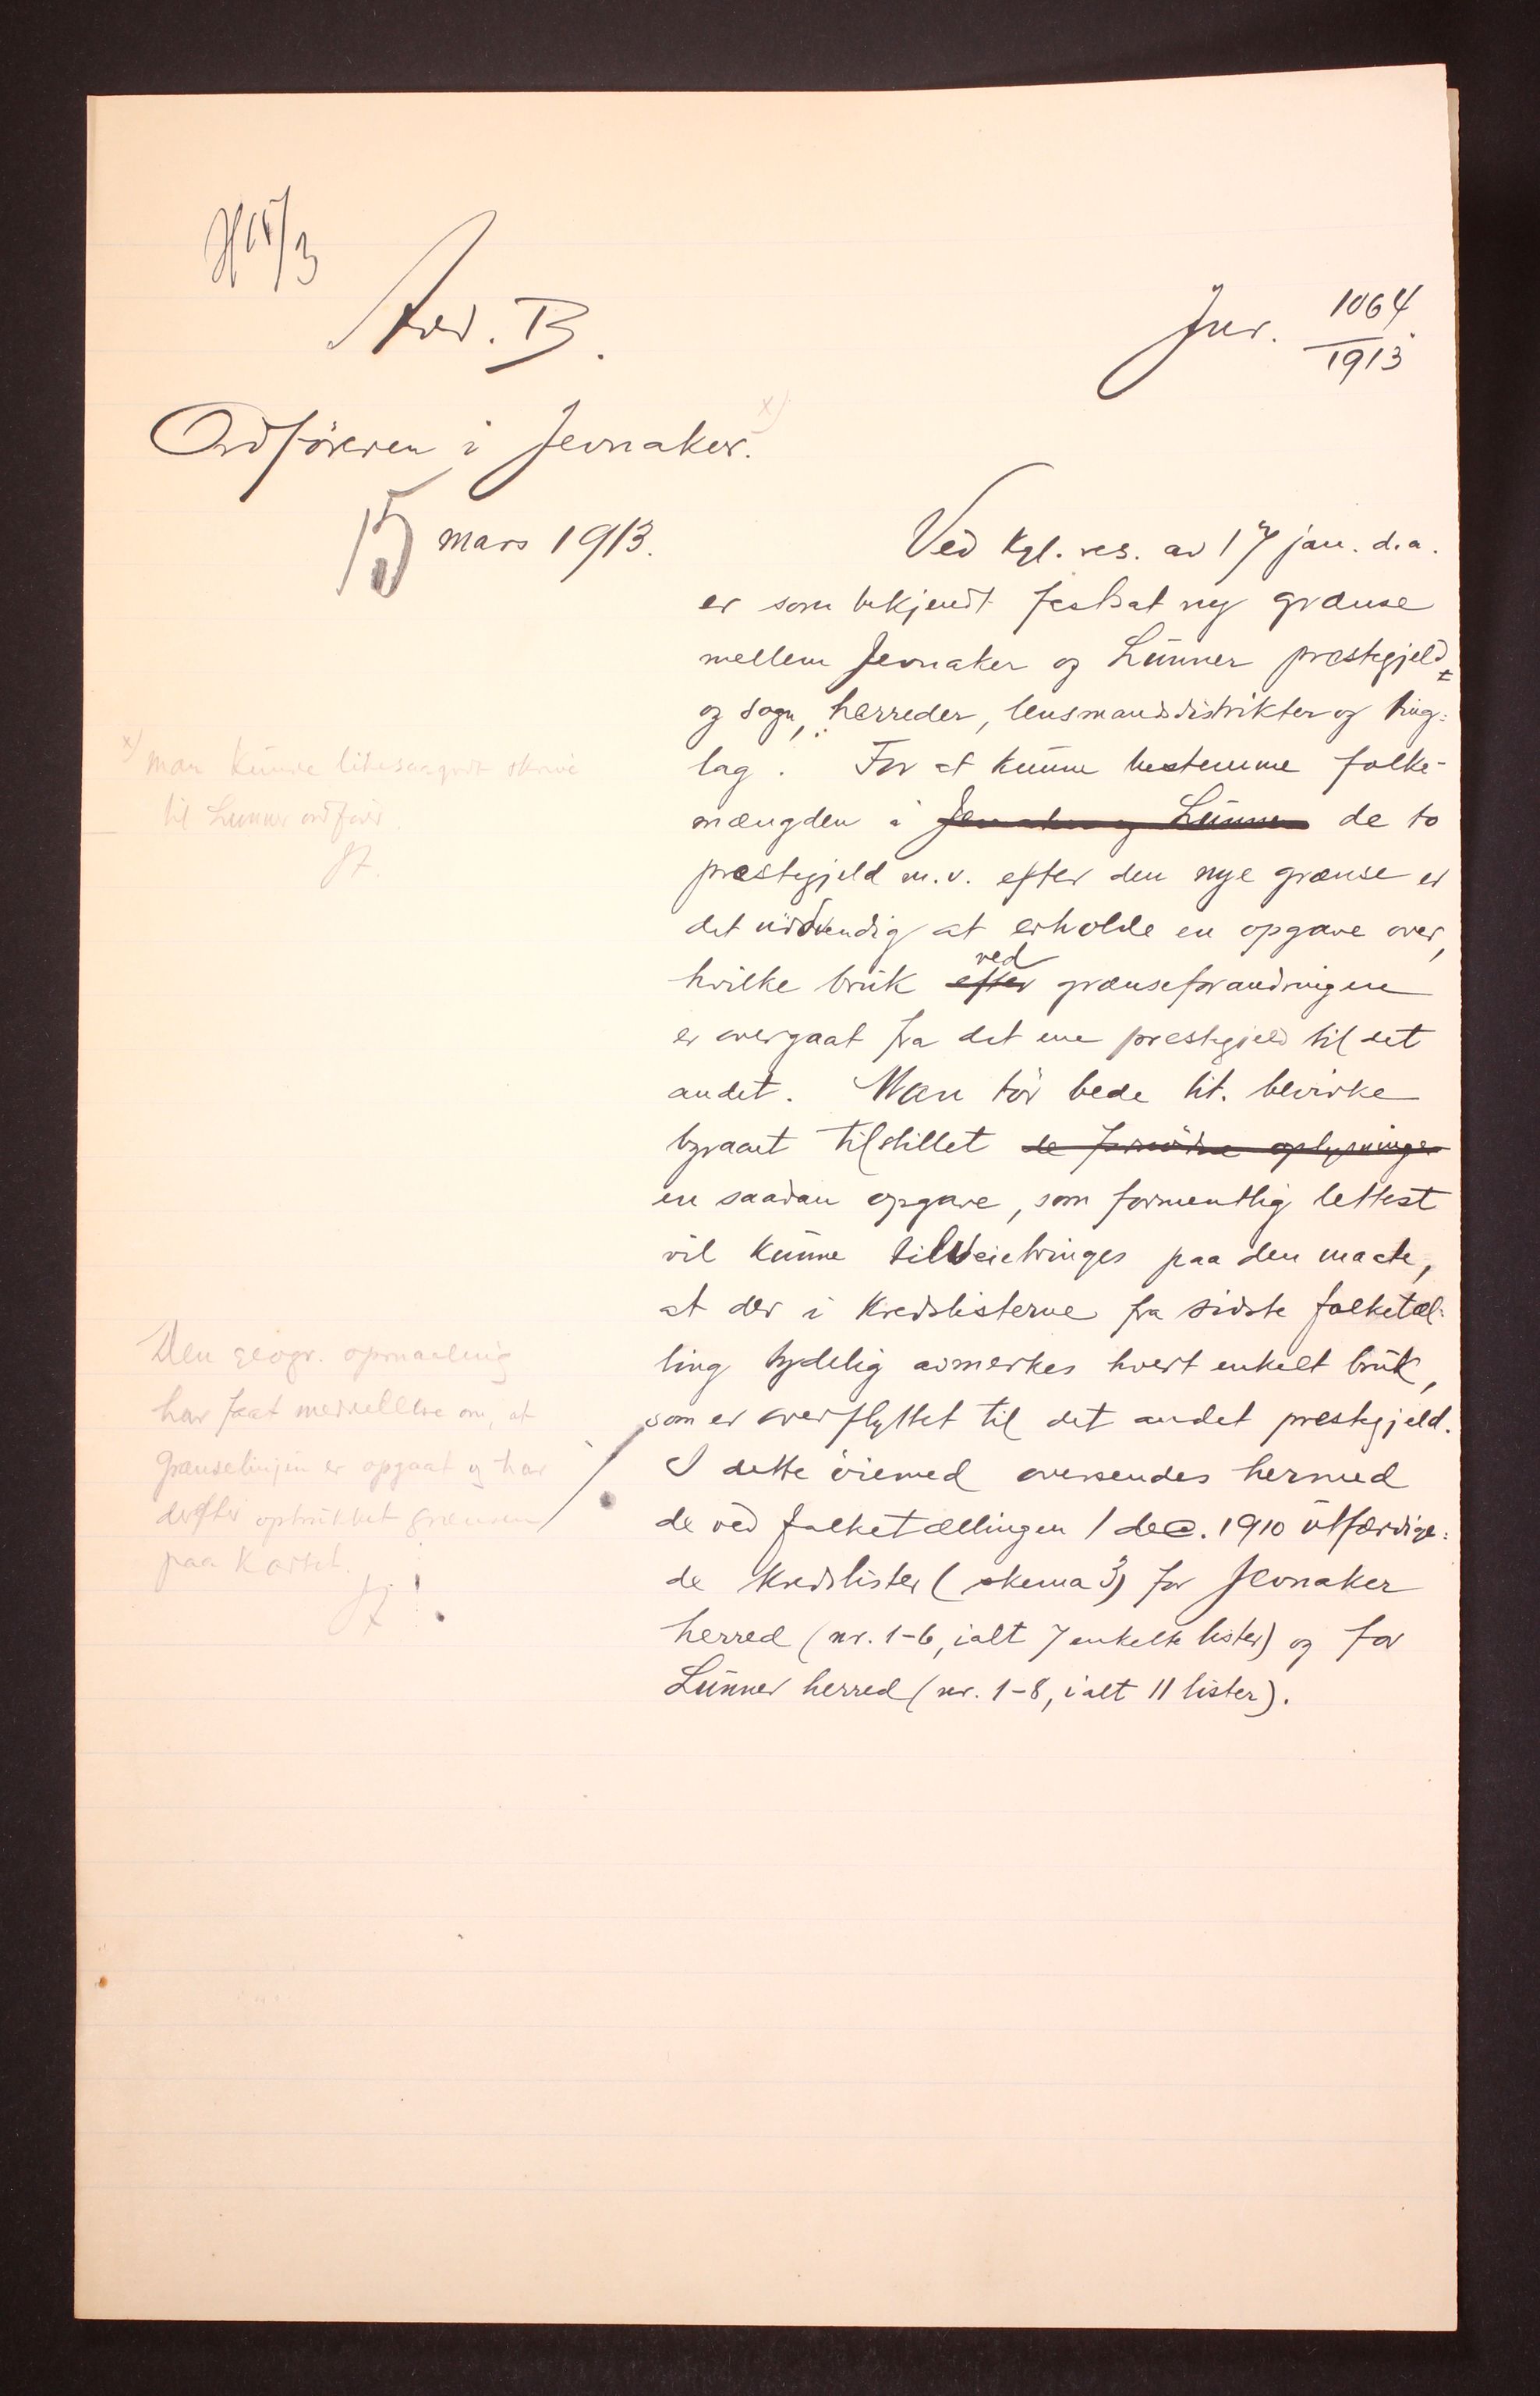 H 15/3
Avd. B.
Jnr. 1064/1913.
Ordföreren i Jevnaker. x)
15 mars 1913.
Ved kgl. res. av 17 jan. d.a.
er som bekjendt fastsat ny grænse
mellem Jevnaker og Lunner prestegjeld
og sogn, herreder, lensmandsdistrikter og ting=
lag. For at kunne bestemme folke-
mængden i Jevnaker og Lunner de to
prestegjeld m.v. efter den nye grænse er
det nödvendig at erholde en opgave over,
hvilke bruk efter ved grænseforandringen
er overgaat fra det ene prestegjeld til det
andet. Man tör bede tit. bevirke
byraaet tilstillet de fornödne oplysninger
en saadan opgave, som formentlig lettest
vil kunne tilveiebringes paa den maate,
at der i kredslisterne fra sidste folketæl=
ling tydelig avmerkes hvert enkelt bruk,
som er overflyttet til det andet prestegjeld.
I dette öiemed oversendes hermed
de ved folketællingen 1 dec. 1910 utfærdige=
de kredslister (skema 3) for Jevnaker
herred (nr. 1-6, ialt 7 enkelte lister) og for
Lunner herred (nr. 1-8, ialt 11 lister).
x) Man kunde likesaagodt skrive
til Lunner ordförer.
Den geogr. opmaaling
har faat meddelelse om, at
grænselinjen er opgaat og har
derefter optrukket grænsen
paa kartet.